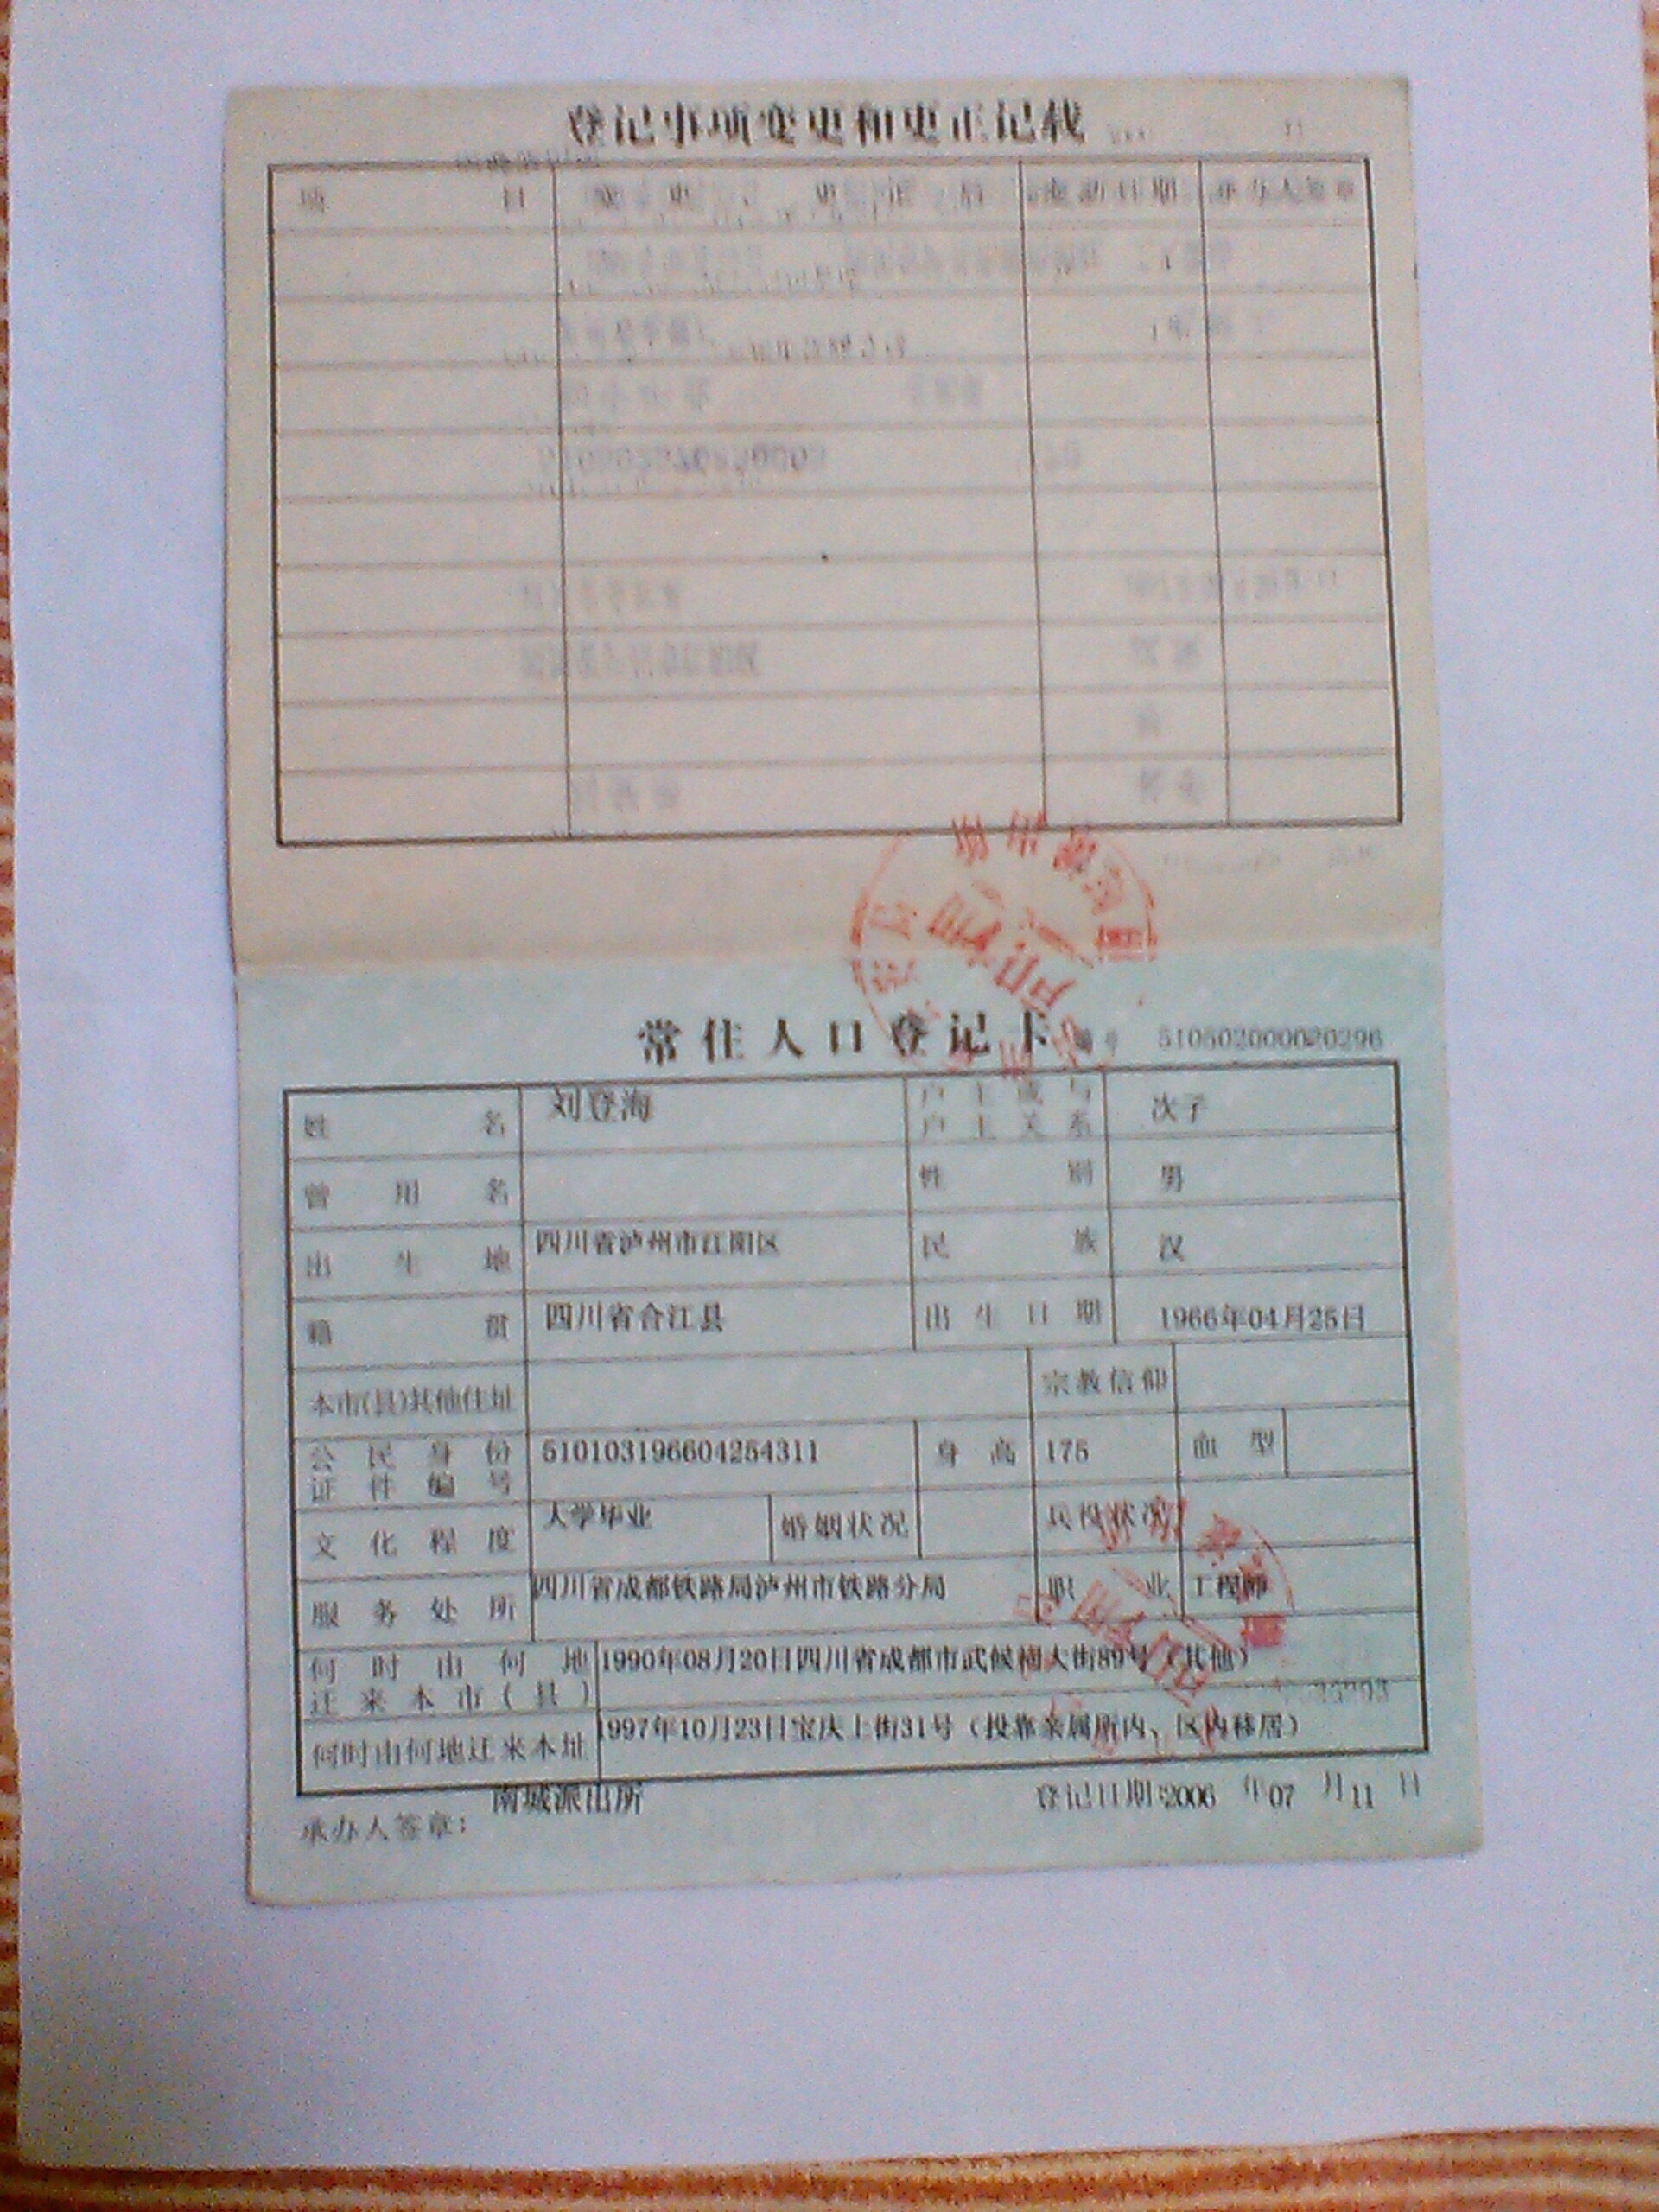 登记事项变更和更正记载
项 目 变 更 更 正 后 变动日期 承办人签章
常住人口登记卡 编号 510502000020296
姓名 刘登海 户主或与户主关系 次子
曾用名 性别 男
出生地 四川省泸州市江阳区 民族 汉
籍贯 四川省合江县 出生日期 1966年04月25日
本市(县)其他住址 宗教信仰
公民身份证件编号 510103196604254311 身高 175 血型
文化程度 大学毕业 婚姻状况 兵役状况
服务处所 四川省成都铁路局泸州市铁路分局 职业 工程师
何时由何地迁来本市(县) 1990年08月20日四川省成都市武候祠大街89号(其他)
何时由何地迁来本址 1997年10月23日宝庆上街31号(投靠亲属所内、区内移居)
南城派出所
承办人签章: 登记日期:2006 年07 月11 日